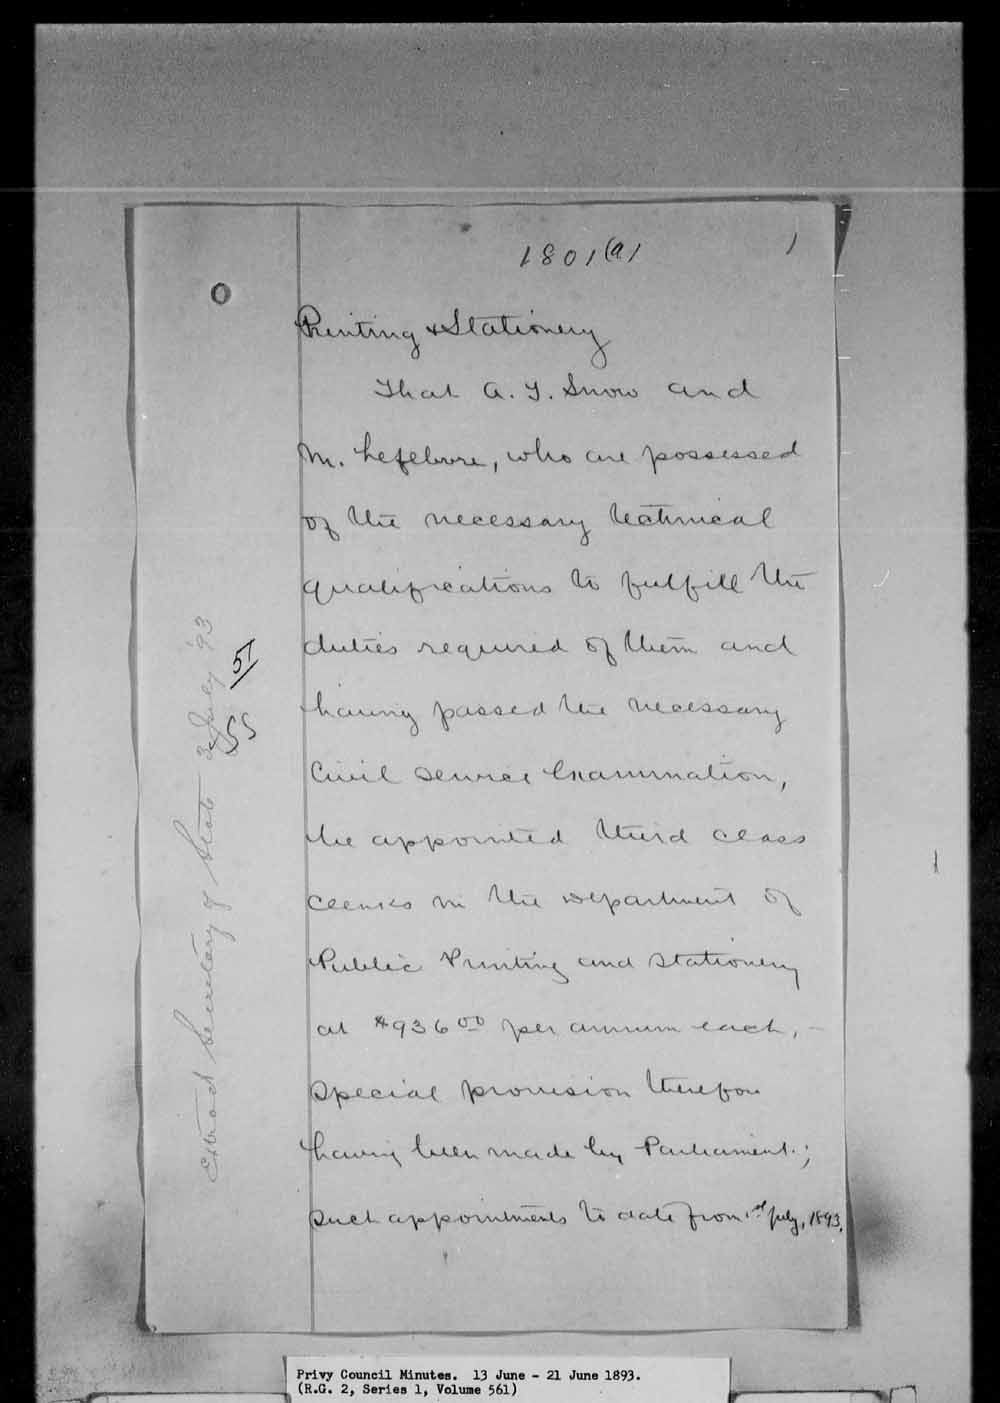 1801(a)
1
Printing & Stationery
That A. T. Snow and
M. Lefebvre, who are possessed
of the necessary technical
qualifications to fulfill the
duties required of them and
having passed the necessary
Civil Service Examination,
be appointed third class
clerks in the Department of
Public Printing and Stationery
at $936.00 per annum each, -
special provision therefor
having been made by Parliament;
such appointments to date from 1st July, 1893.
Extract Secretary of State 3 July '93
51
SS
Privy Council Minutes. 13 June - 21 June 1893.
(R.G. 2, Series 1, Volume 561)